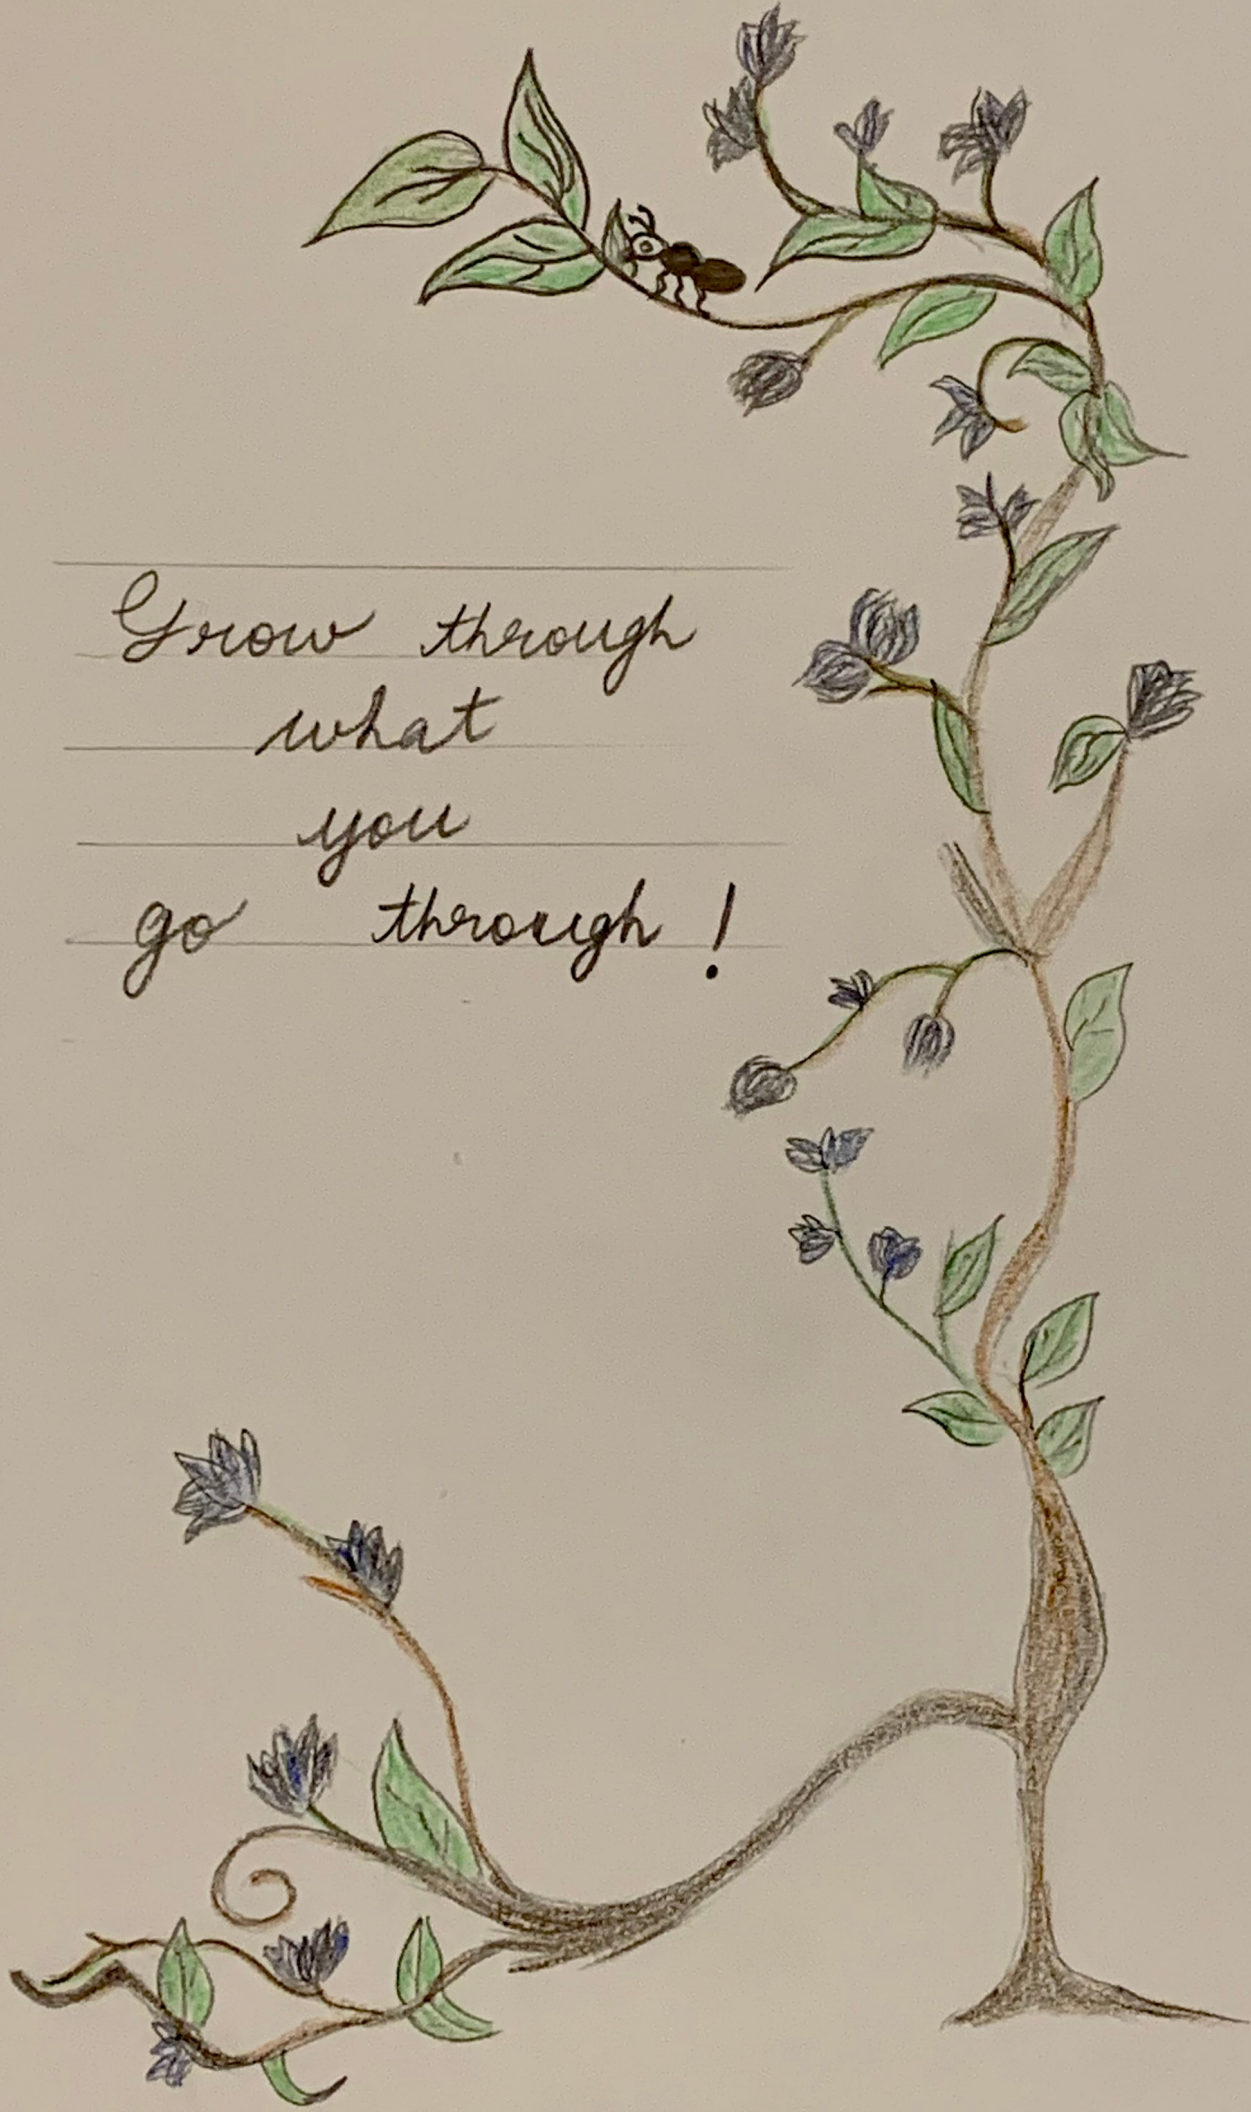 Grow through
what
you
go through!